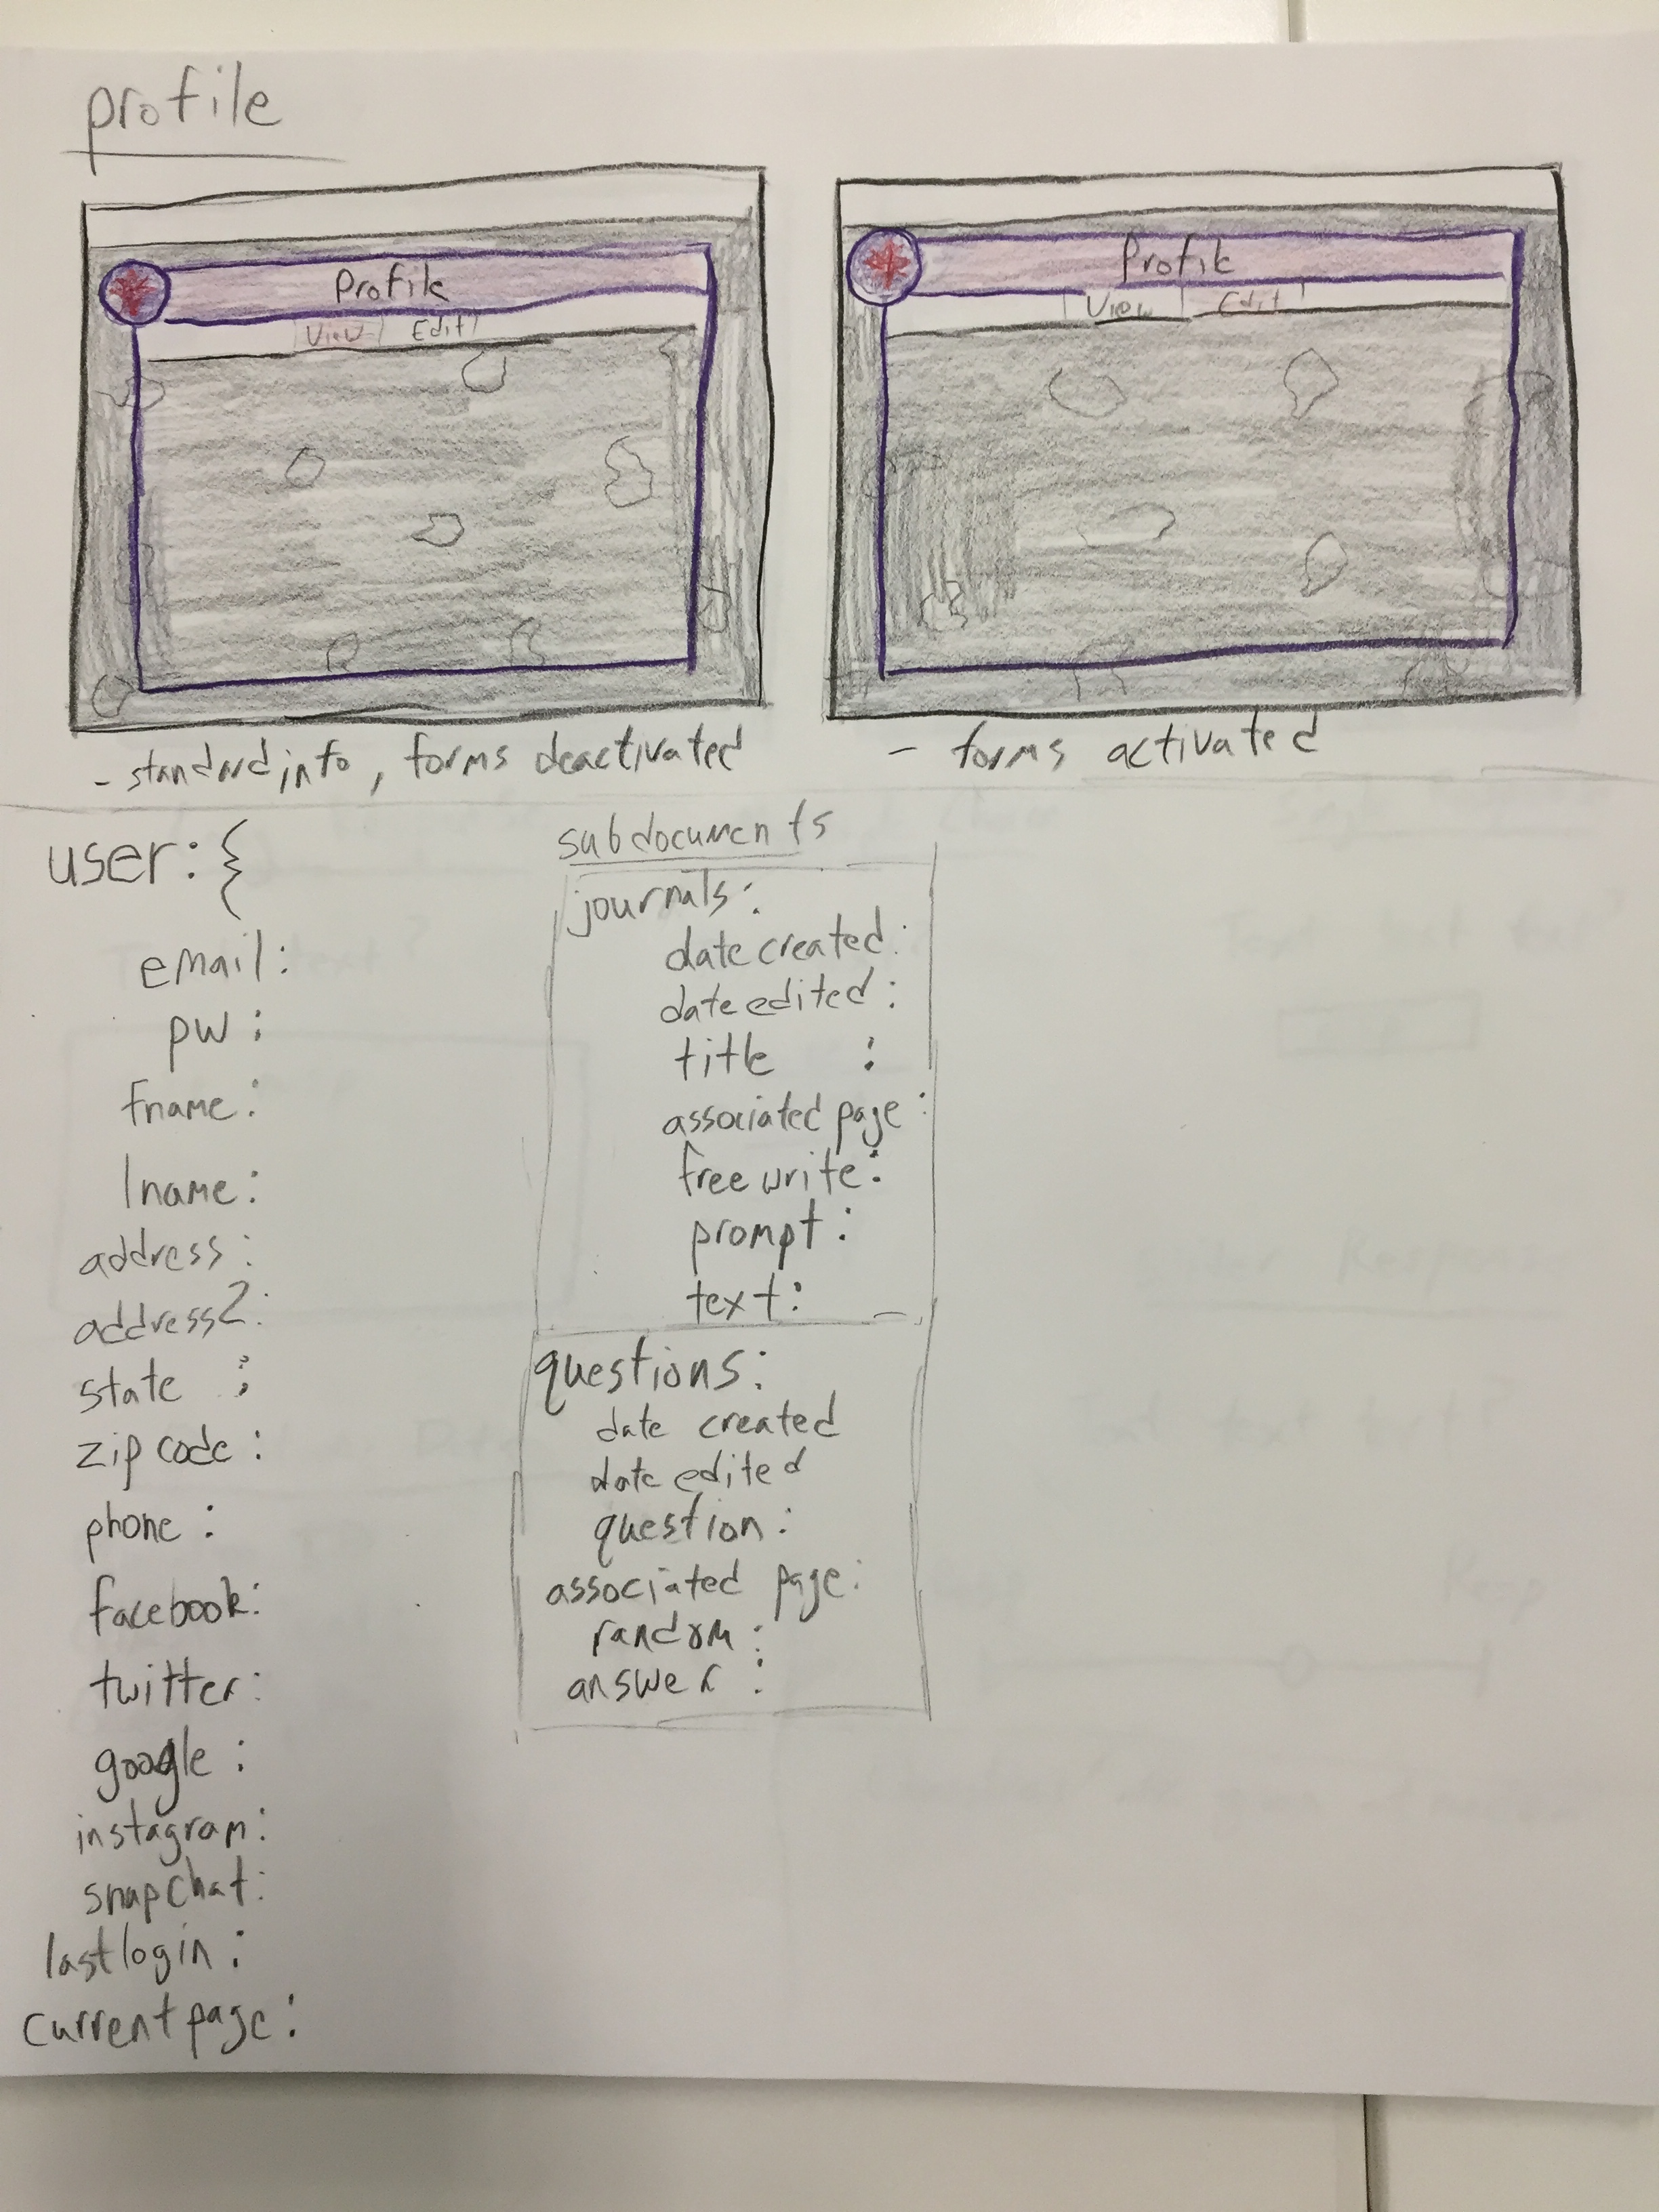 profile
Profile
View Edit
Profile
View Edit
- standard info, forms deactivated
- forms activated
user: {
email:
pw :
fname:
lname:
address:
address2:
state :
zip code :
phone :
facebook:
twitter:
google :
instagram:
snapchat:
lastlogin :
currentpage :
subdocuments
journals:
date created:
date edited :
title :
associated page :
free write:
prompt :
text :
questions:
date created
date edited
question :
associated page:
random :
answer :